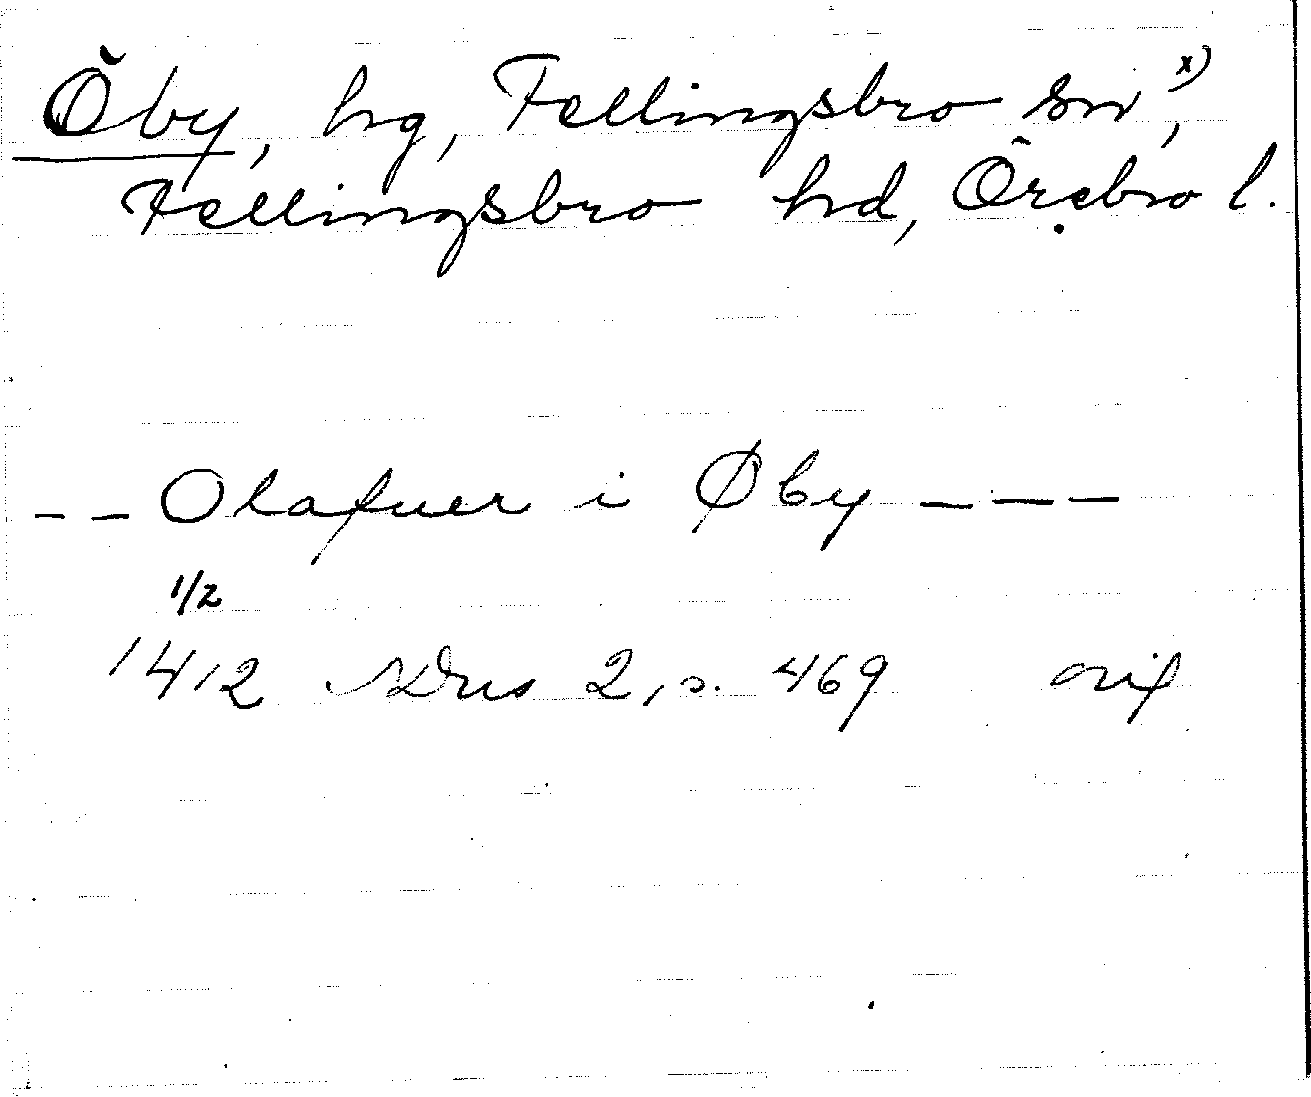 Öby, hg, Fellingsbro sn x),
Fellingsbro hd, Örebro l.
-- Olafuer i Øby ---
1/2
1412 SDns 2, s. 469 orig